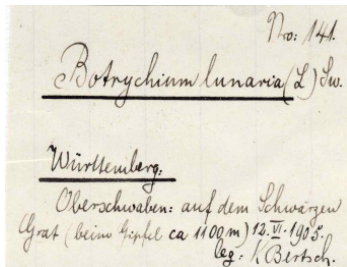 No: 141.
Botrychium lunaria (L) Sw.
Württemberg:
Oberschwaben: auf dem Schwarzen
Grat (beim Gipfel ca 1100 m) 12. VI. 1905.
leg: K Bertsch.